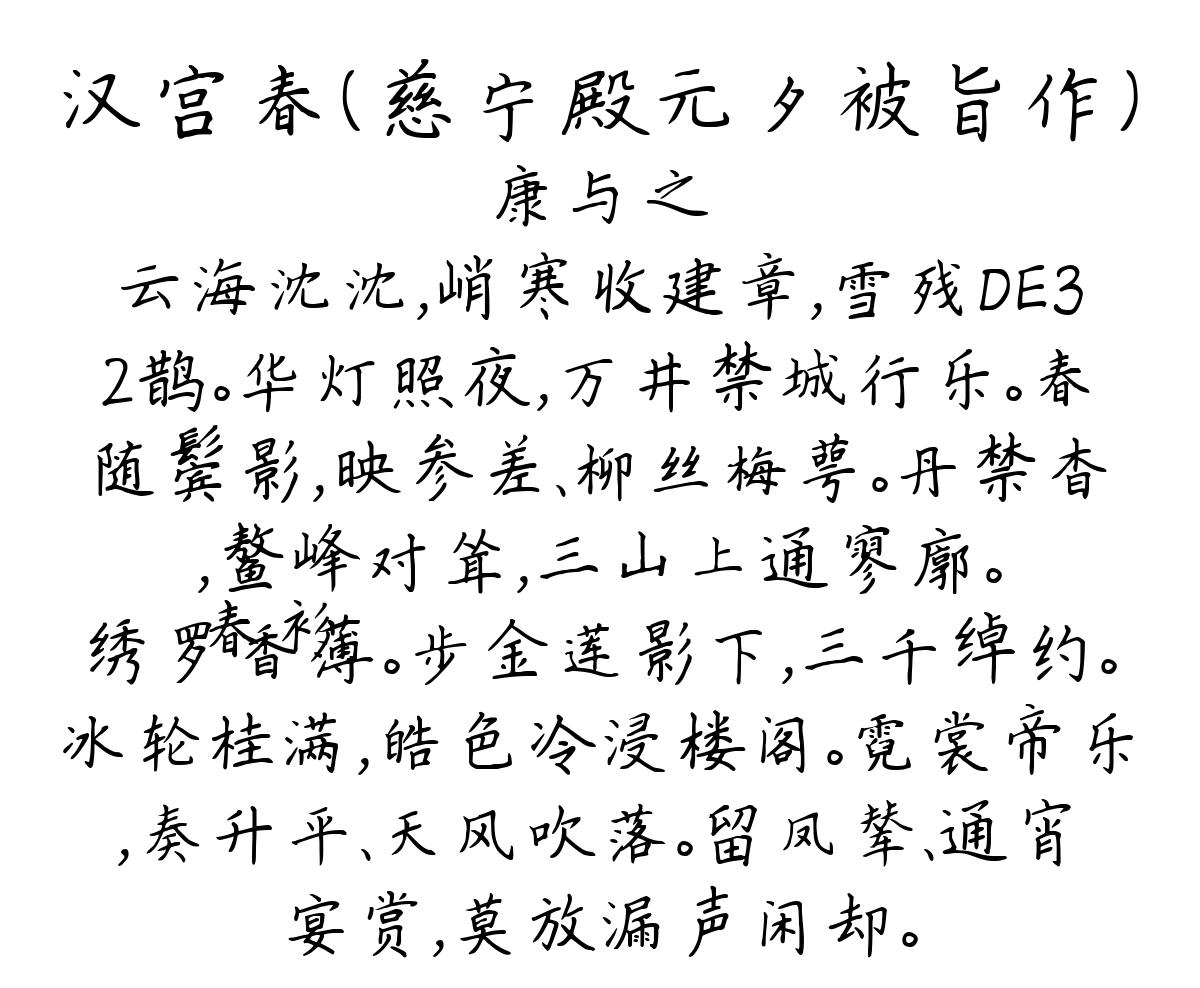 汉宫春(慈宁殿元夕被旨作)
康与之
云海沈沈,峭寒收建章,雪残DE3
2鹊。华灯照夜,万井禁城行乐。春
随鬓影,映参差、柳丝梅萼。丹禁杳
,鳌峰对耸,三山上通寥廓。
绣罗春香衫薄。步金莲影下,三千绰约。
冰轮桂满,皓色冷浸楼阁。霓裳帝乐
,奏升平、天风吹落。留凤辇、通宵
宴赏,莫放漏声闲却。